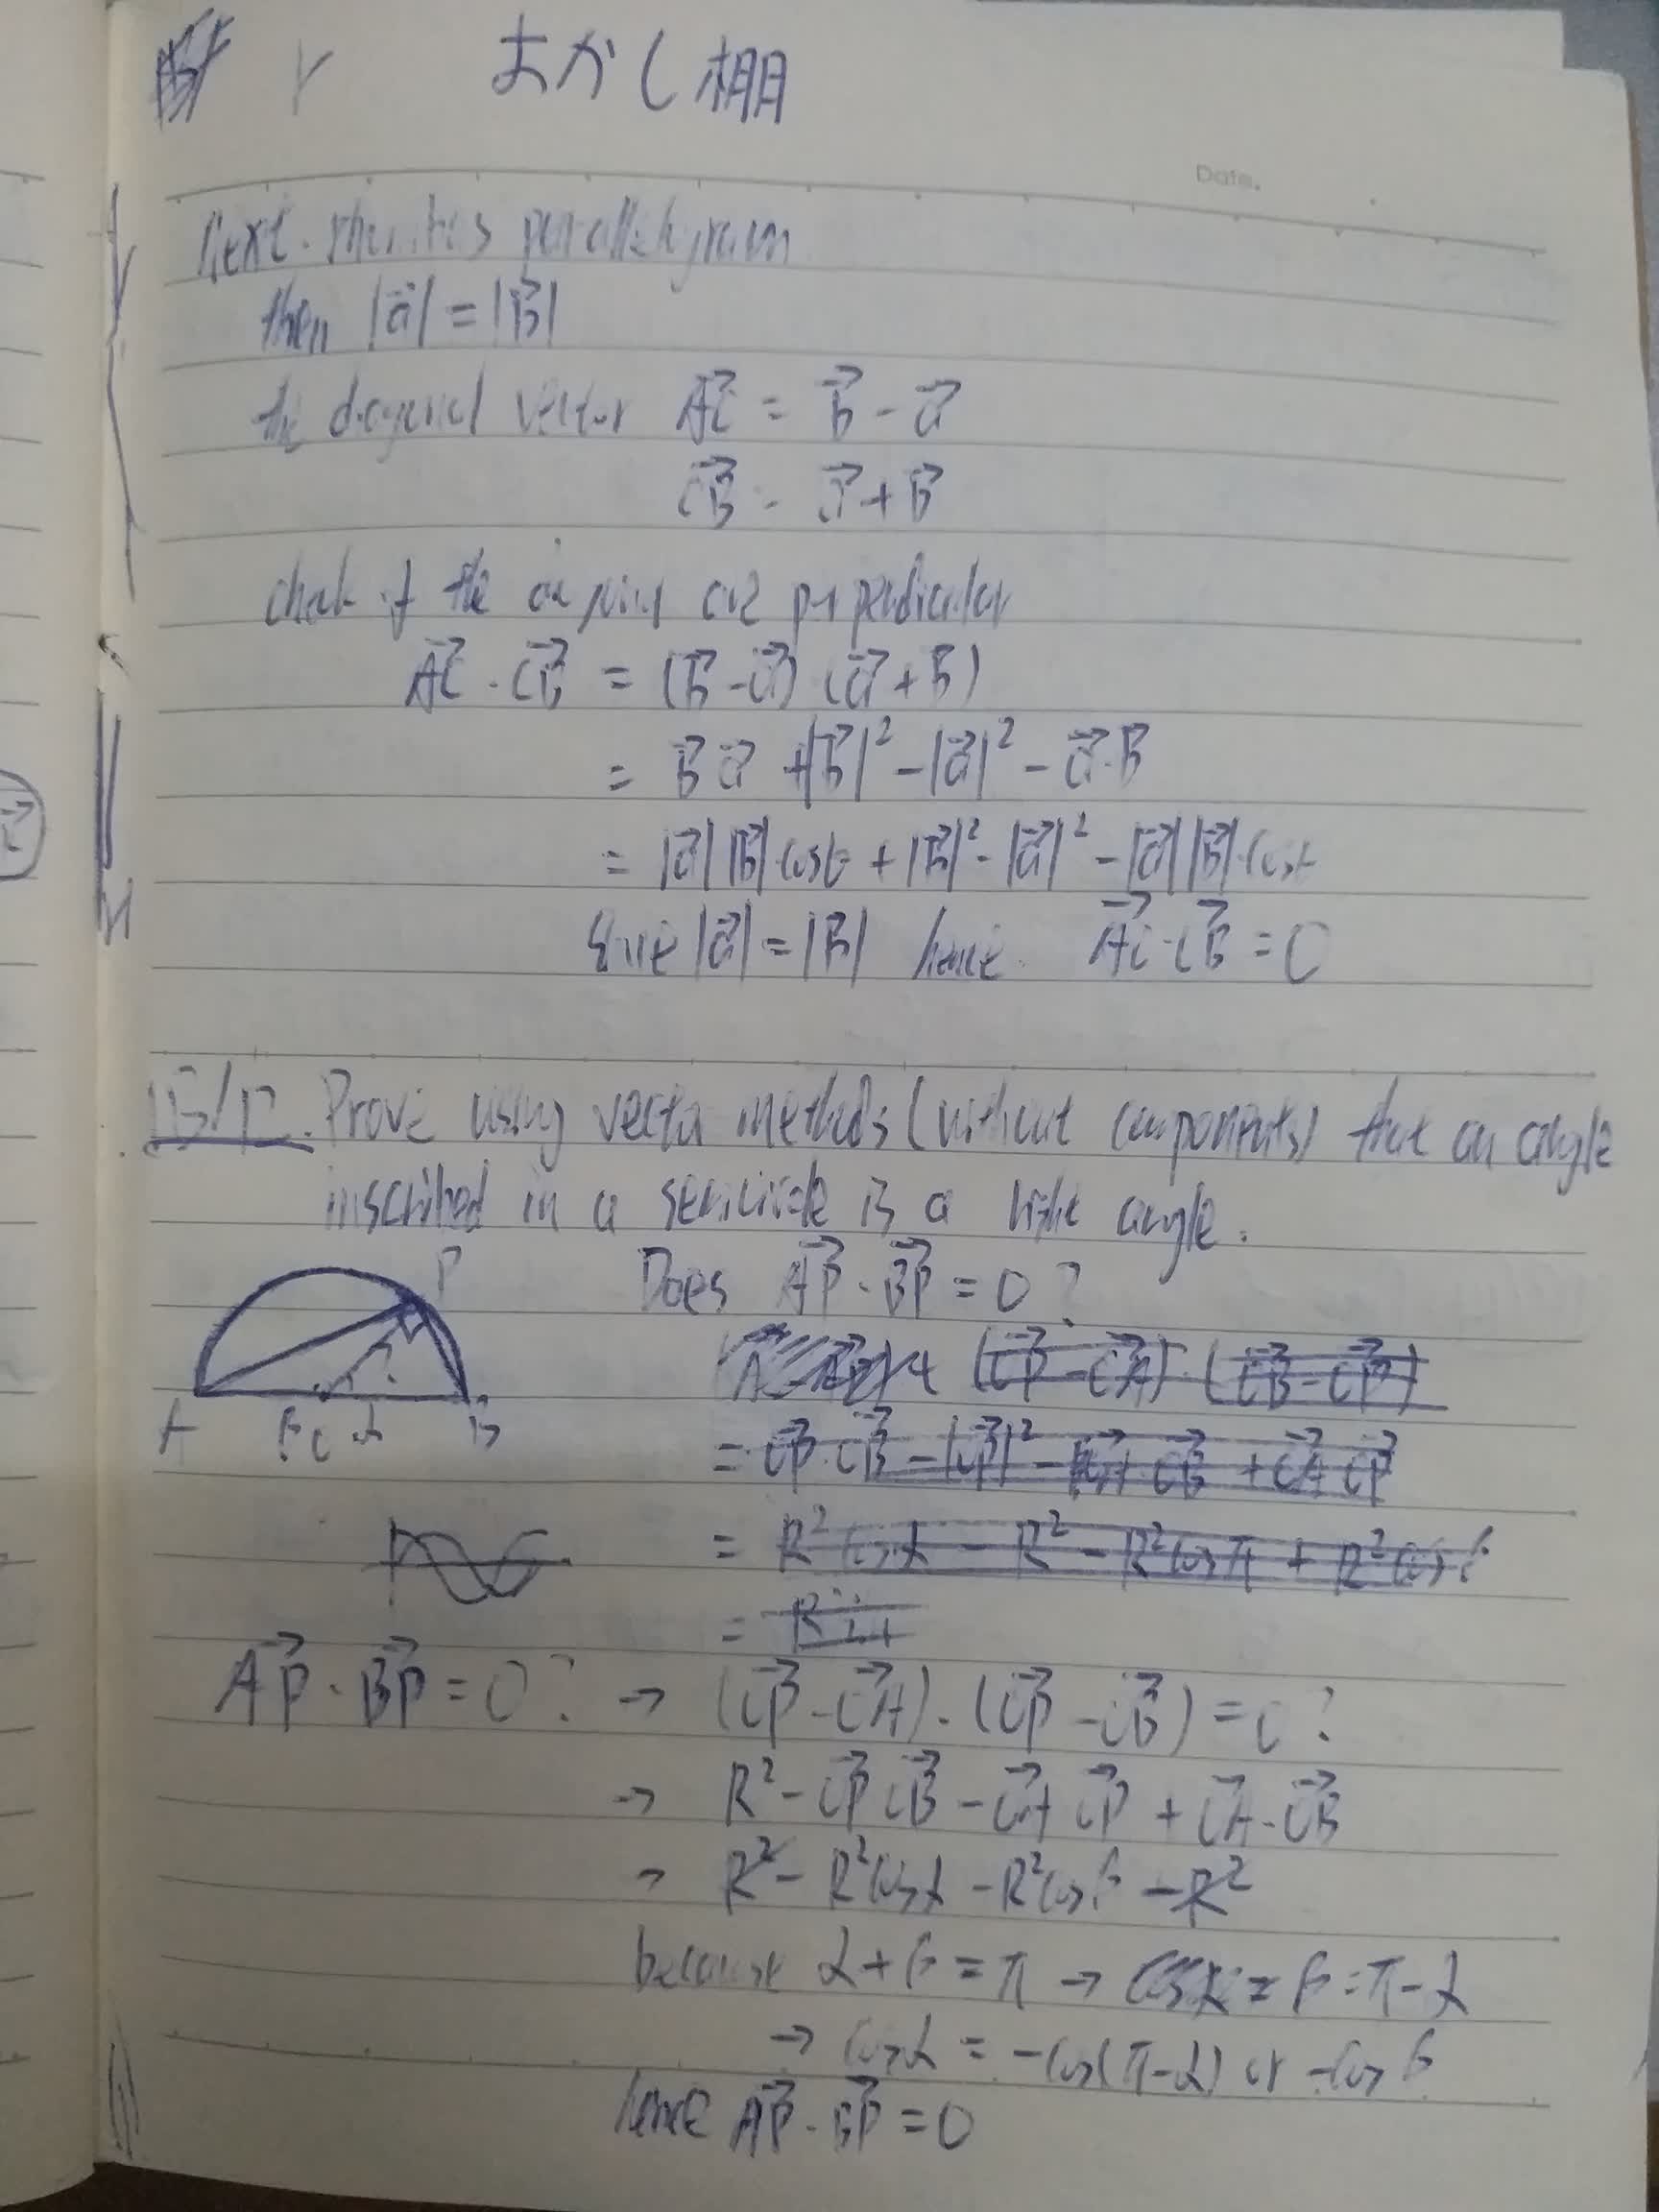 r おかし棚
Date.
next. rhombus parallelogram
then |a⃗| = |B⃗|
the diagonal vector AC⃗ = B⃗ - a⃗
CB⃗ = a⃗ + B⃗
check if the are perpendicular
AC⃗ · CB⃗ = (B⃗ - a⃗) (a⃗ + B⃗)
= B⃗ a⃗ + |B⃗|² - |a⃗|² - a⃗·B⃗
= |a⃗| |B⃗| cosθ + |B⃗|² - |a⃗|² - |a⃗| |B⃗| cos
since |a⃗| = |B⃗| hence AC⃗·CB⃗ = 0
Prove using vector methods (without components) that an angle
inscribed in a semicircle is a right angle.
Does AP⃗ · BP⃗ = 0 ?
P
A β C α B
(CP⃗ - CA⃗) · (CB⃗ - CP⃗)
= CP⃗·CB⃗ - |CP⃗|² - CA⃗ CB⃗ + CA⃗ CP⃗
= R² cosα - R² - R² cosπ + R² cosβ
= R²
AP⃗ · BP⃗ = 0 ? → (CP⃗ - CA⃗) · (CP⃗ - CB⃗) = 0 ?
→ R² - CP⃗ CB⃗ - CA⃗ CP⃗ + CA⃗·CB⃗
→ R² - R²cosα - R²cosβ - R²
because α + β = π → β = π - α
→ cosα = -cos(π-α) or -cosβ
hence AP⃗ · BP⃗ = 0